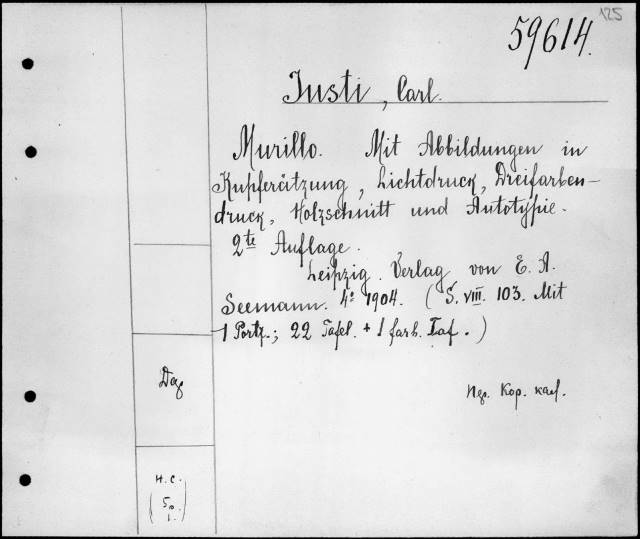 125
59614.
Justi, Carl.
Murillo. Mit Abbildungen in
Kupferätzung, Lichtdruck, Dreifarben-
druck, Holzschnitt und Autotypie.
2te Auflage.
Leipzig. Verlag von E. A.
Seemann. 4º 1904. (S. VIII. 103. Mit
1 Portr.; 22 Tafel. + 1 farb. Taf.)
Kop.
H. C.